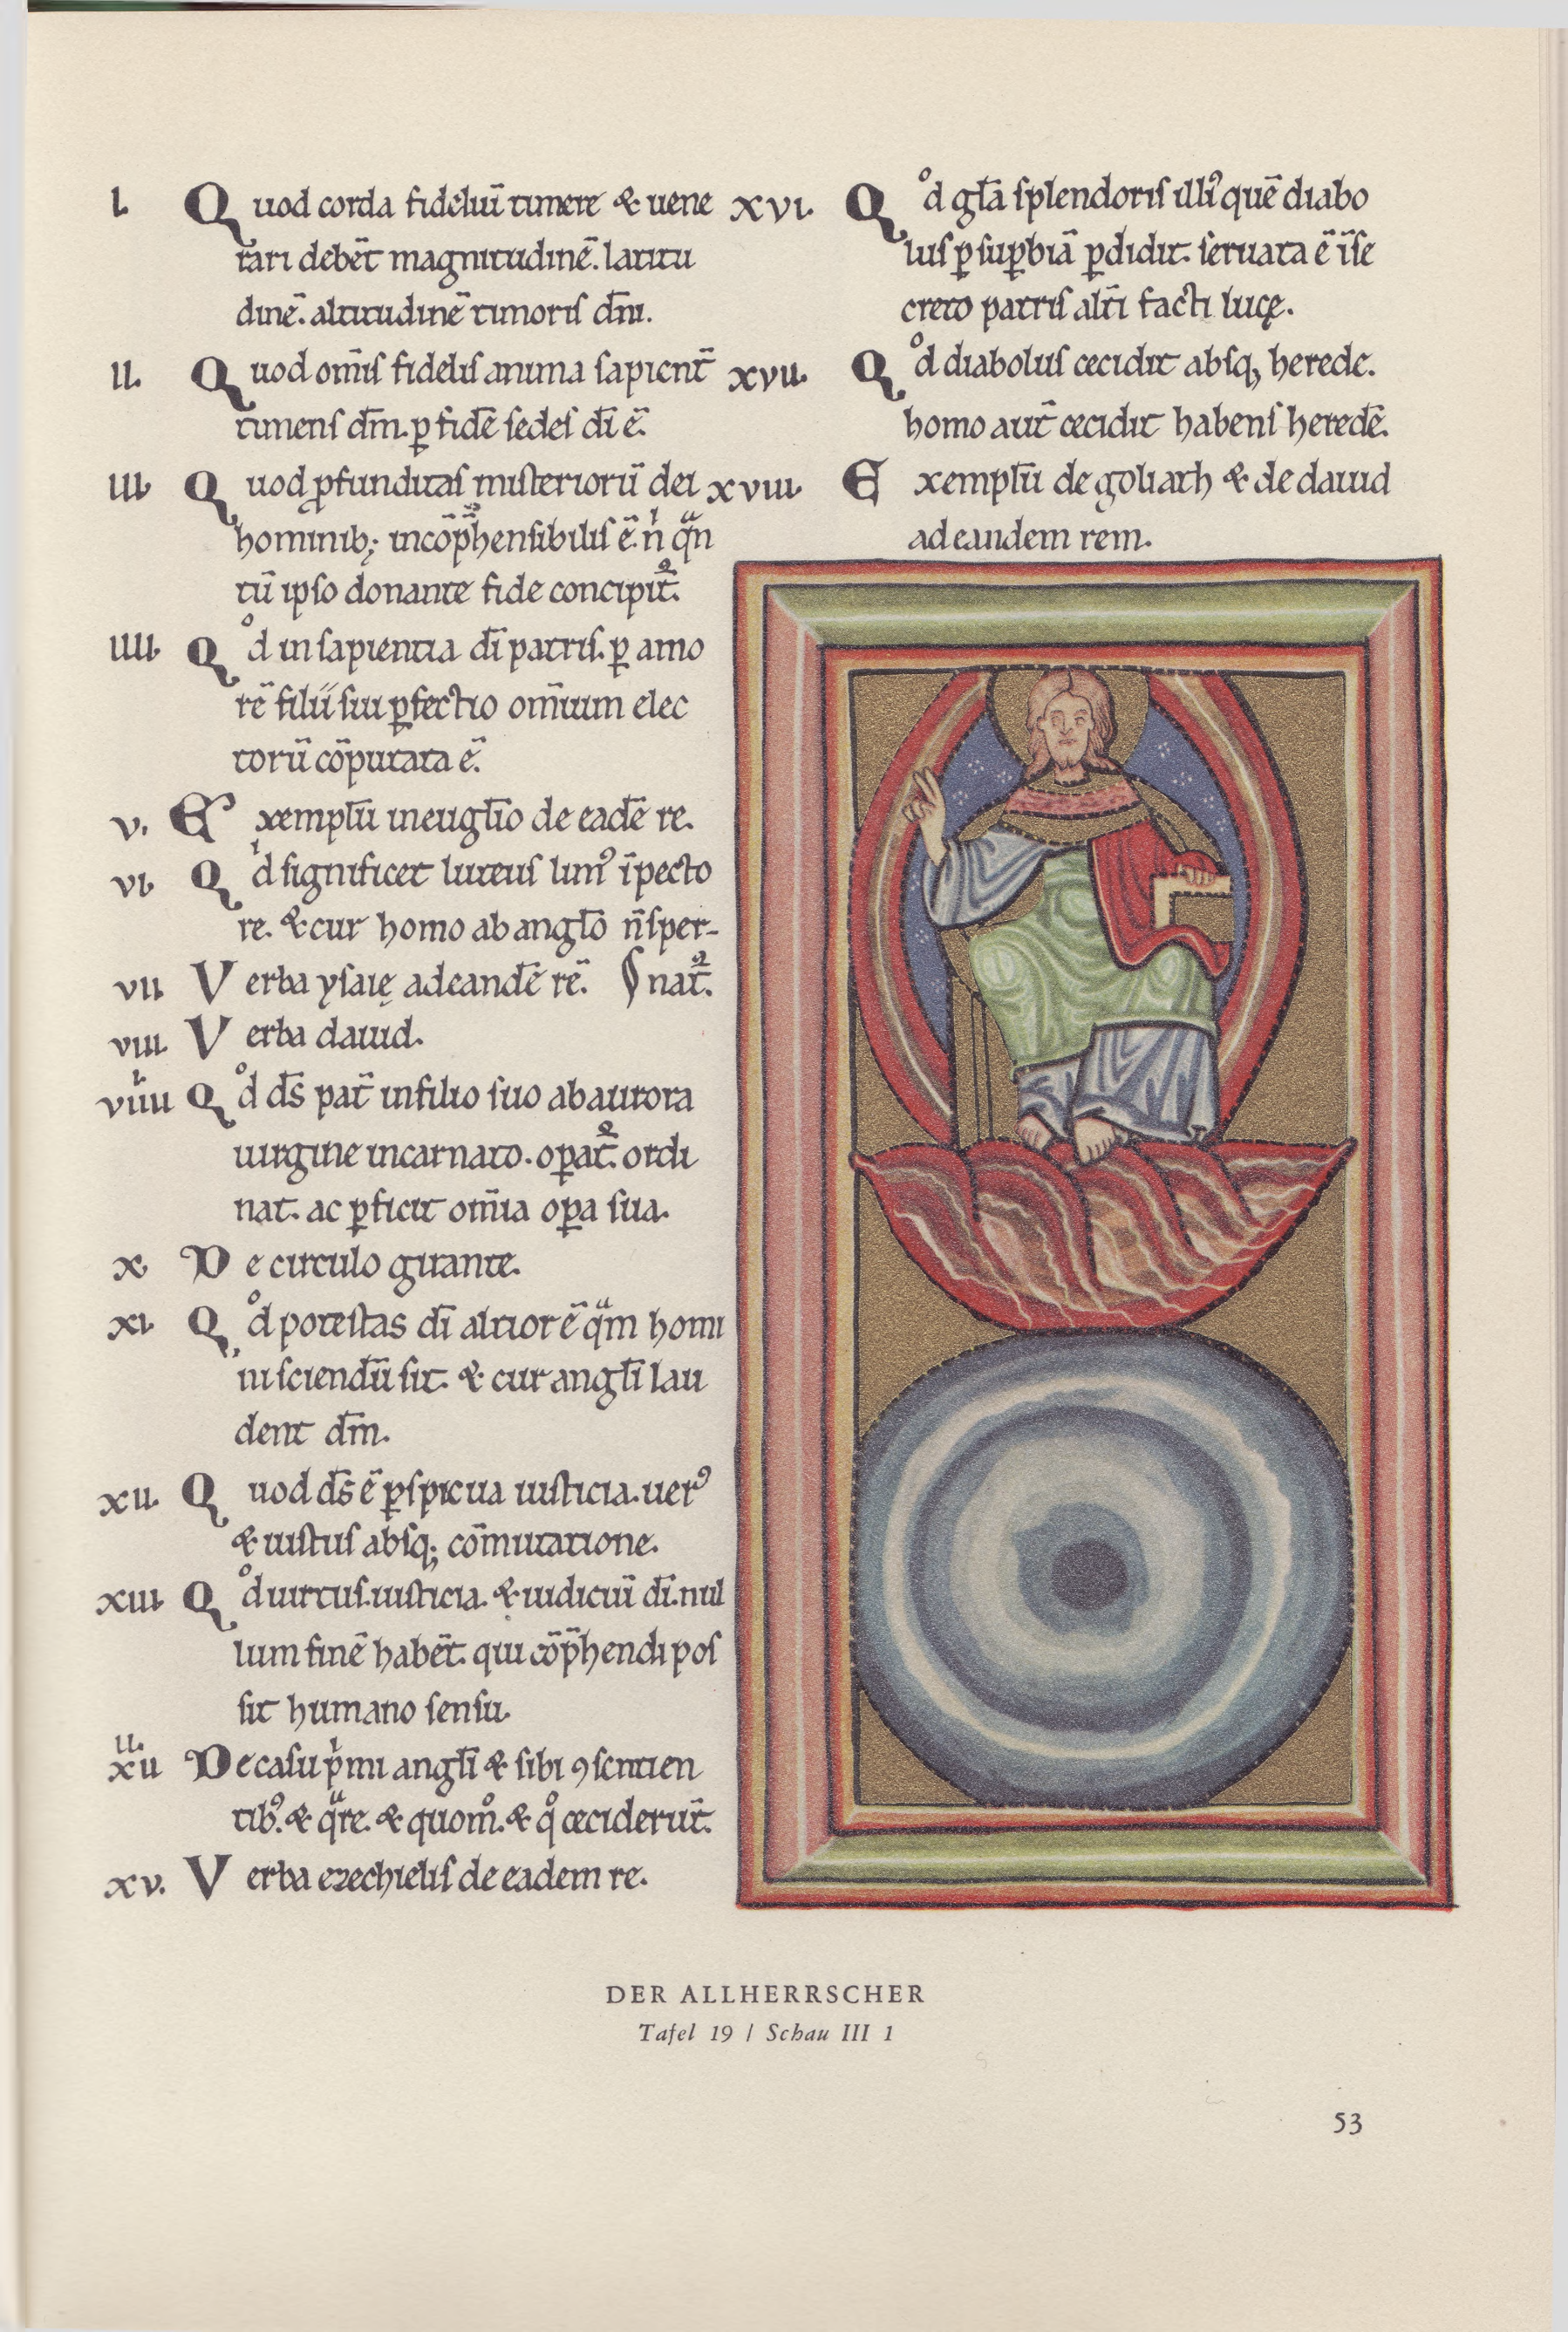 I. Quod corda fideliū timere & uene
rari debēt magnitudinē. latitu
dinē. altitudinē timoris dn̄i.
II. Quod om̄is fidelis anima sapient̄
timens dm̄. ꝑ fidē sedes dī ē.
III. Quod ꝓfunditas misteriorū dei
hominib; incōp̄hensibilis ē. nͥ qͣn
tū ipso donante fide concipit᷑.
IIII. Qͦd in sapientia dī patris. ꝑ amo
rē filii sui ꝑfectio om̄ium elec
torū cōputata ē.
V. Exemplū in euḡlio de eadē re.
VI. Qͥd significet luteus limꝰ ī pecto
re. & cur homo ab anglō n̄ sper-
VII. Verba ysaię ad eandē rē. ∫ nat᷑.
VIII. Verba dauid.
VIIII. Qͦd ds̄ pat̄ in filio suo ab aurora
uirgine incarnato. oꝑat᷑. ordi
nat. ac ꝑficit om̄ia oꝑa sua.
X. De circulo giͣrante.
XI. Qͦd potestas dī altior ē qͣm homi
ni sciendū sit. & cur anglī lau
dent dm̄.
XII. Quod ds̄ ē ꝑspicua iusticia. uerꝰ
& iustus absq; com̄utatione.
XIII. Qͦd uirtus. iusticia. & iudiciū dī. nul
lum finē habēt. qui cōp̄hendi pos
sit humano sensu.
XIIII De casu pͥmi anglī & sibi ꝯsentien
tibꝰ. & qͣre. & quomͦ. & qͦ ceciderūt.
XV. Verba ezechielis de eadem re.
XVI. Qͦd glā splendoris illiꝰ quē diabo
lus ꝑ suꝑbiā ꝑdidit. seruata ē ī se
creto patris altī facti lucę.
XVII. Qͦd diabolus cecidit absq; herede.
homo aut̄ cecidit habens heredē.
XVIII. Exemplū de goliath & de dauid
ad eandem rem.
DER ALLHERRSCHER
Tafel 19 / Schau III 1
53